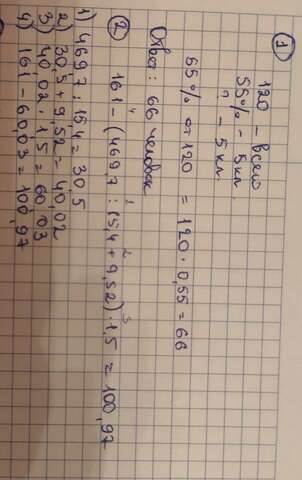 ①
120 - всего
55% - 5 кл.
? - 5 кл.
55% от 120 = 120 · 0,55 = 66
Ответ: 66 человек
②
161 - (469,7 : 15,4 + 9,52) · 1,5 = 100,97
1) 469,7 : 15,4 = 30,5
2) 30,5 + 9,52 = 40,02
3) 40,02 · 1,5 = 60,03
4) 161 - 60,03 = 100,97